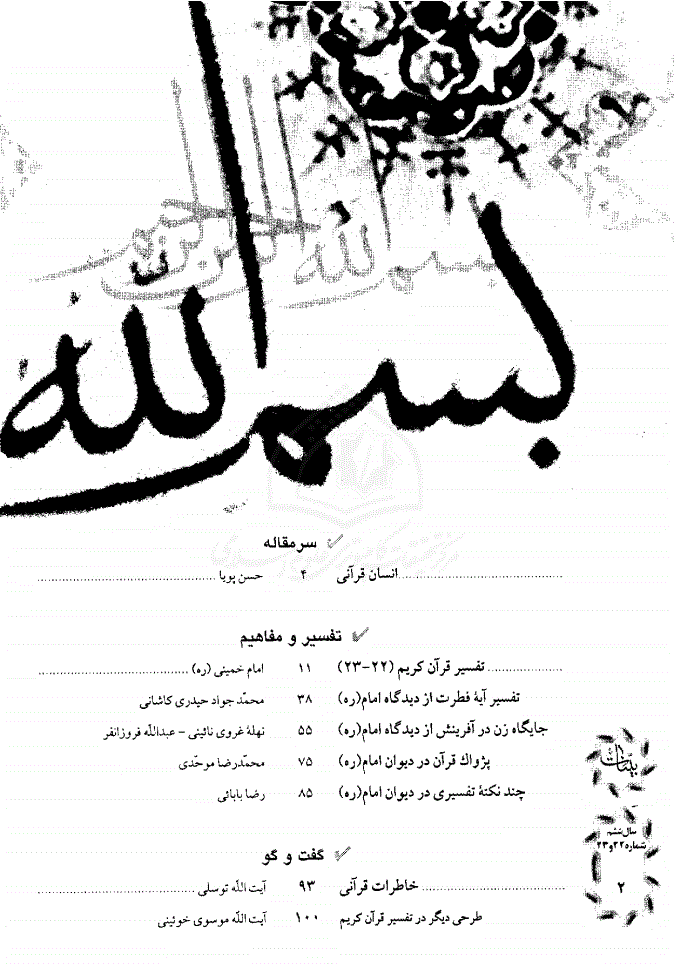 بسم الله الرحمن الرحیم
بسم الله
سرمقاله
انسان قرآنی ۴ حسن پویا
تفسیر و مفاهیم
تفسیر قرآن کریم (۲۲-۲۳) ۱۱ امام خمینی (ره)
تفسیر آیهٔ فطرت از دیدگاه امام(ره) ۳۸ محمّد جواد حیدری کاشانی
جایگاه زن در آفرینش از دیدگاه امام(ره) ۵۵ نهلهٔ غروی نائینی - عبداللّه فروزانفر
پژواک قرآن در دیوان امام(ره) ۷۵ محمّدرضا موحّدی
چند نکتهٔ تفسیری در دیوان امام(ره) ۸۵ رضا بابائی
گفت و گو
خاطرات قرآنی ۹۳ آیت اللّه توسلی
طرحی دیگر در تفسیر قرآن کریم ۱۰۰ آیت اللّه موسوی خوئینی
بیّنات
سال ششم
شماره ۲۲و۲۳
۲